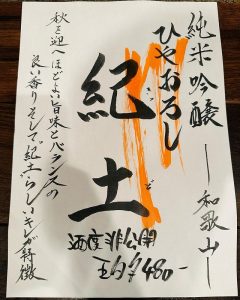 純米吟醸 ― 和歌山 ―
ひやおろし
紀土
きっど
酒度非公開
¥480-
秋を迎へほどよい旨味とバランスの
良い香りそして紀土らしいキレが特徴